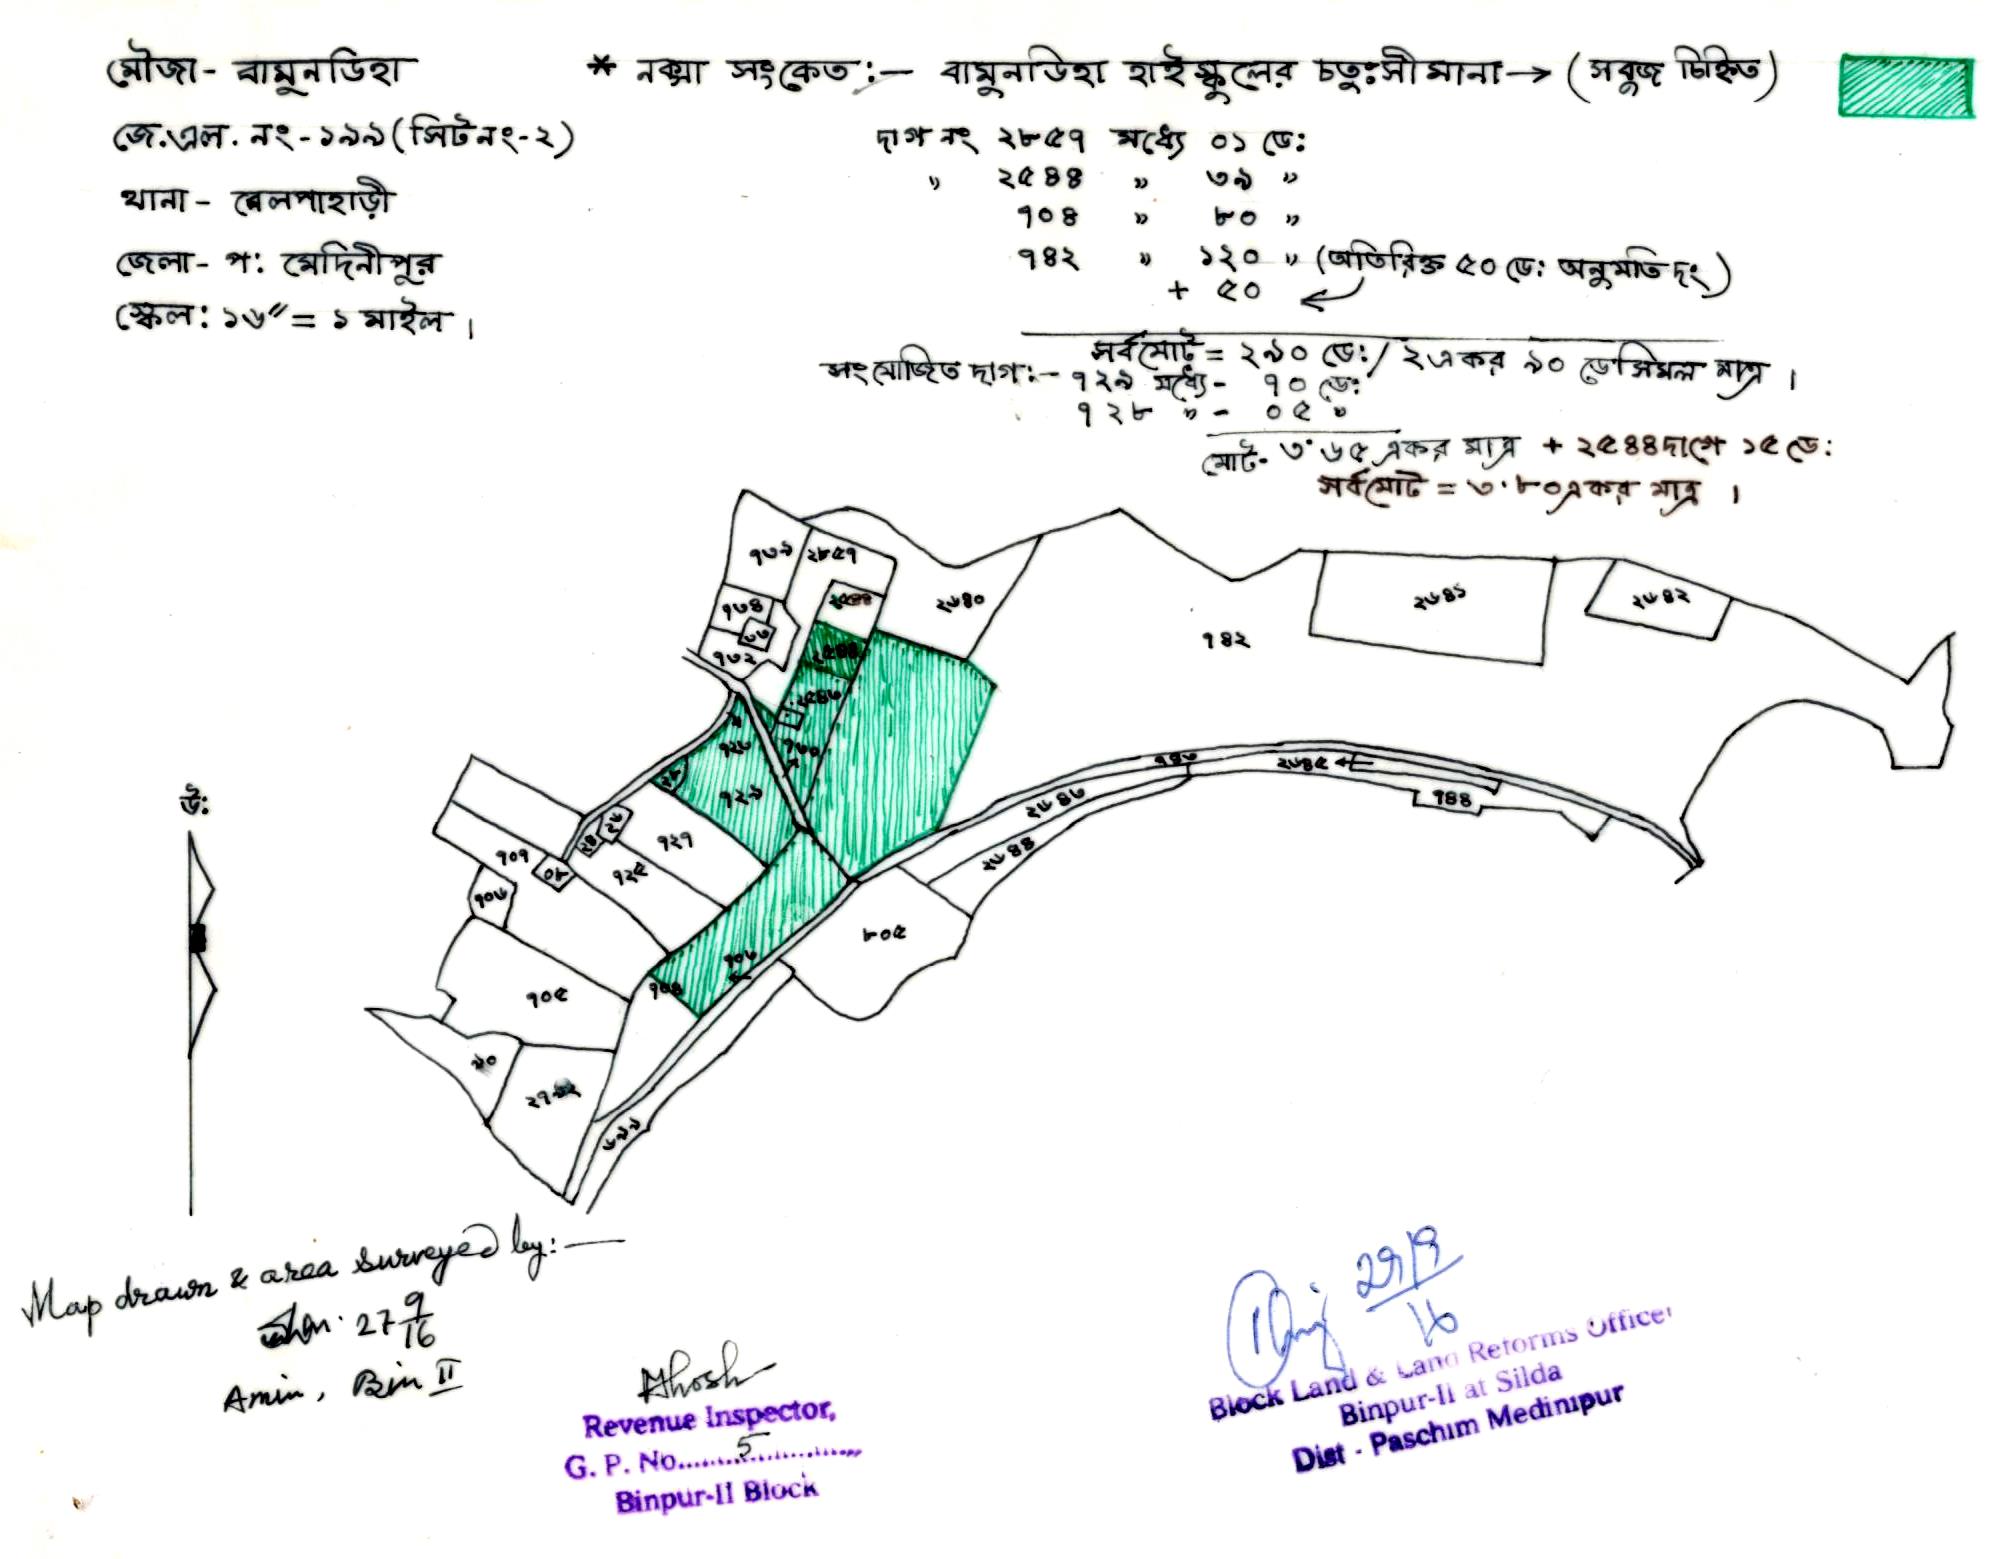 মৌজা - বামুনডিহা
জে.এল. নং - ১৯৯ (সিট নং - ২)
থানা - বেলপাহাড়ী
জেলা - প: মেদিনীপুর
স্কেল: ১৬" = ১ মাইল।
* নক্সা সংকেত :- বামুনডিহা হাইস্কুলের চতু:সীমানা → (সবুজ চিহ্নিত)
দাগ নং ২৮৫৭ মধ্যে ০১ ডে:
" ২৫৪৪ " ৩৯ "
৭০৪ " ৮০ "
৭৪২ " ১২০ " (অতিরিক্ত ৫০ ডে: অনুমতি দং)
+ ৫০
সর্বমোট = ২৯০ ডে: / ২ একর ৯০ ডেসিমল মাত্র।
সংযোজিত দাগ :- ৭২৯ মধ্যে - ৭০ ডে:
৭২৮ " - ০৫ "
মোট - ৩.৬৫ একর মাত্র + ২৫৪৪ দাগে ১৫ ডে:
সর্বমোট = ৩.৮০ একর মাত্র।
৭৩১ ২৮৫৭
২৫৪৪
২৬৪০
২৬৪১
২৬৪২
৭৩৪
৩৩
৭৩২
৭৪২
২৫৪৪
২৫৪৩
৭২৬
৭৩০
৭৪৩
২৬৪৫
২৮
৭২৯
২৬৪৬
৭৪৪
উ:
২৬
২৪
৭২৭
২৬৪৪
৭০৭
০৮
৭২৫
৭০৬
৮০৫
৭০৩
৭০৪
৭০৫
৯০
৬৯৯
Map drawn & area surveyed by: —
27/9/16
Amin, Bin II
AGhosh
Revenue Inspector,
G. P. No......5......
Binpur-II Block
29/9/16
Block Land & Land Reforms Officer
Binpur-II at Silda
Dist - Paschim Medinipur